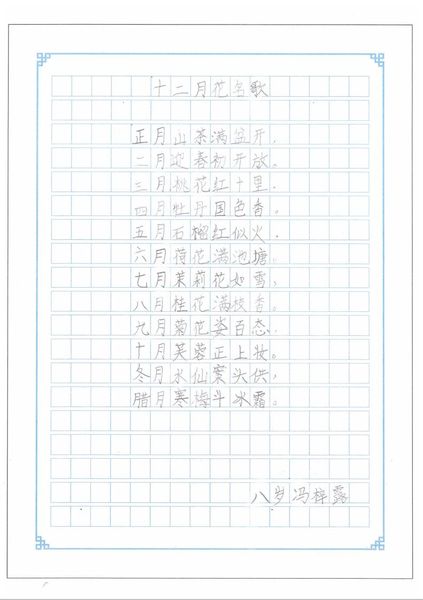 十二月花名歌
正月山茶满盆开，
二月迎春初开放。
三月桃花红十里，
四月牡丹国色香。
五月石榴红似火，
六月荷花满池塘。
七月茉莉花如雪，
八月桂花满枝香。
九月菊花姿百态，
十月芙蓉正上妆。
冬月水仙案头供，
腊月寒梅斗冰霜。
八岁冯梓露